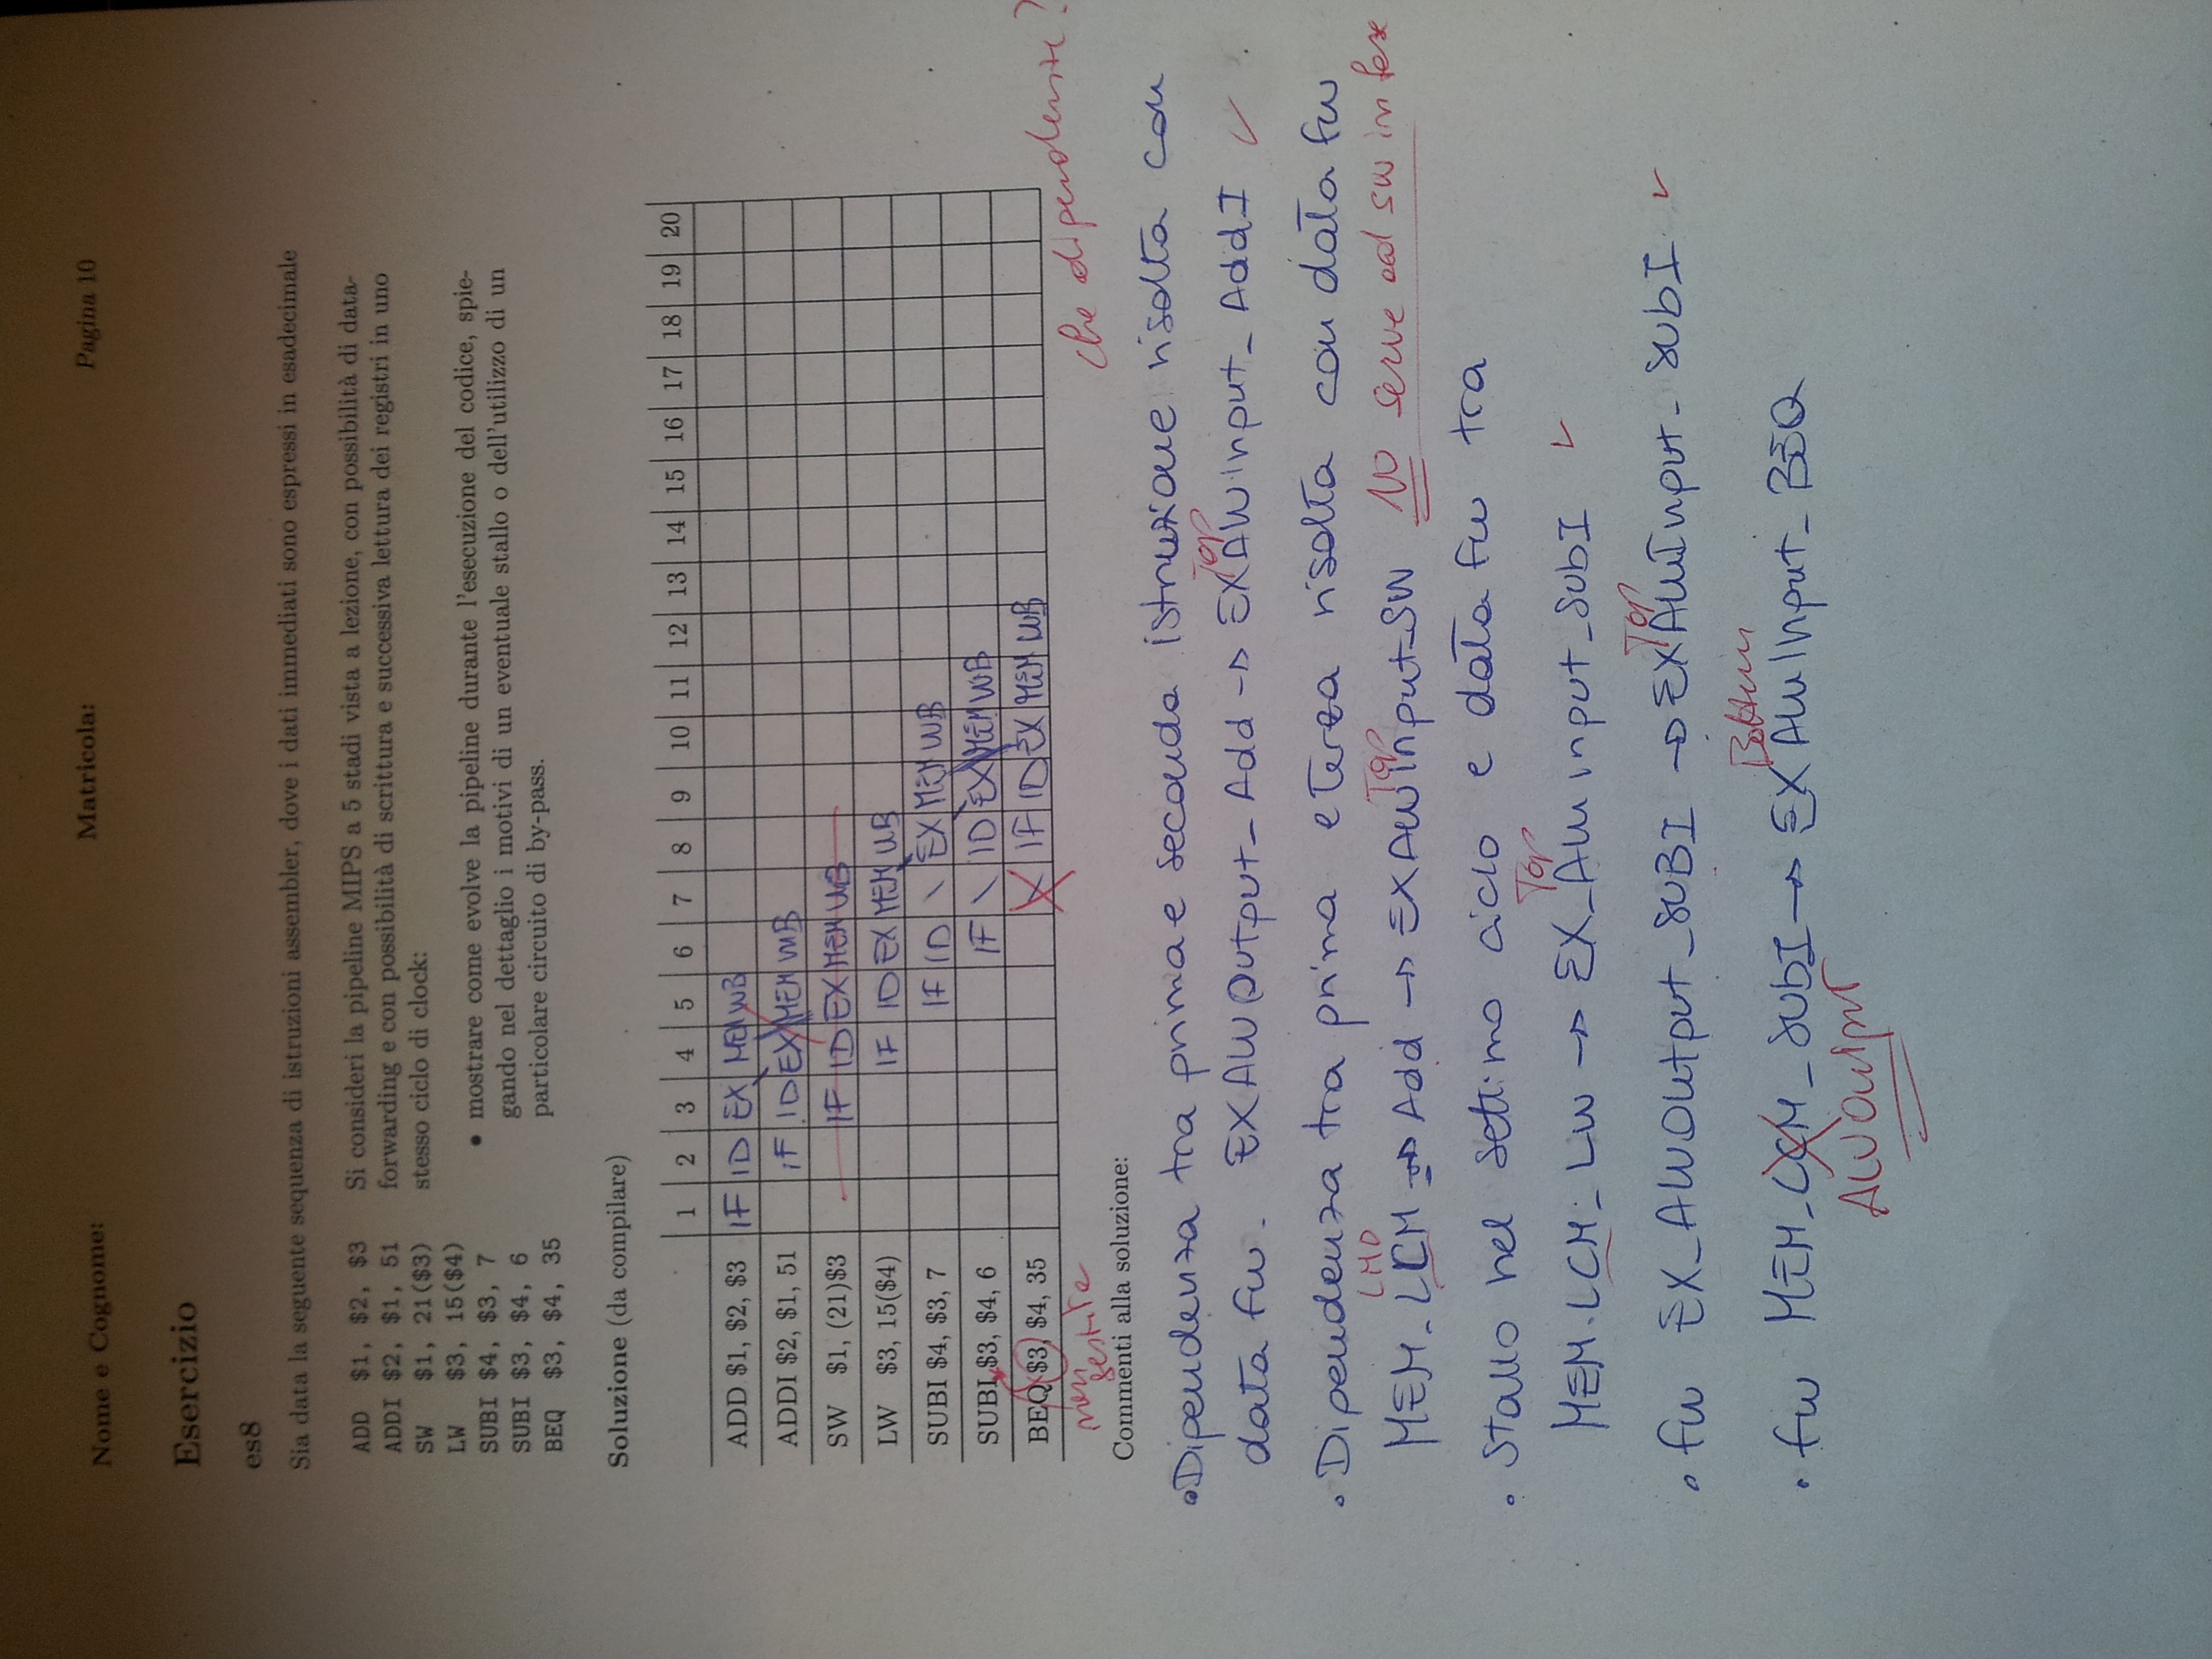 Nome e Cognome: Matricola: Pagina 10
Esercizio
es8
Sia data la seguente sequenza di istruzioni assembler, dove i dati immediati sono espressi in esadecimale
ADD $1, $2, $3
ADDI $2, $1, 51
SW $1, 21($3)
LW $3, 15($4)
SUBI $4, $3, 7
SUBI $3, $4, 6
BEQ $3, $4, 35
Si consideri la pipeline MIPS a 5 stadi vista a lezione, con possibilità di data-
forwarding e con possibilità di scrittura e successiva lettura dei registri in uno
stesso ciclo di clock:
• mostrare come evolve la pipeline durante l'esecuzione del codice, spie-
gando nel dettaglio i motivi di un eventuale stallo o dell'utilizzo di un
particolare circuito di by-pass.
Soluzione (da compilare)
1 2 3 4 5 6 7 8 9 10 11 12 13 14 15 16 17 18 19 20
ADD $1, $2, $3 IF ID EX MEM WB
ADDI $2, $1, 51 IF ID EX MEM WB
SW $1, (21)$3 IF ID EX MEM WB
LW $3, 15($4) IF ID EX MEM WB
SUBI $4, $3, 7 IF ID \ EX MEM WB
SUBI $3, $4, 6 IF \ ID EX MEM WB
BEQ $3, $4, 35 X IF ID EX MEM WB
non
gestita
che dipendenze?
Commenti alla soluzione:
• Dipendenza tra prima e seconda istruzione risolta con
Top
data fw. EX ALUOutput_Add → EX ALUinput_AddI ✓
• Dipendenza tra prima e terza risolta con data fw
LMD Top
MEM_LCM → Add → EX ALUinput_SW NO serve ad SW in fase
• Stallo nel settimo ciclo e data fw tra
Top
MEM.LCM_LW → EX_ALUinput_SubI ✓
Top
• fw EX_ALUOutput_SUBI → EX ALUInput_SubI ✓
Bottom
• fw MEM_LCM_SUBI → EX ALUInput_BEQ
ALUOutput